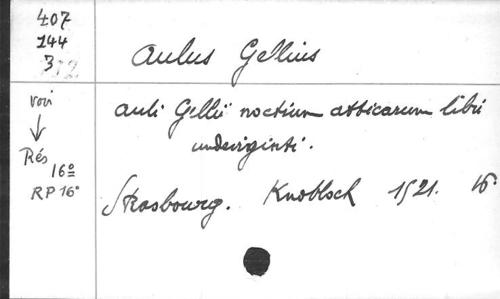 407
144
3
Aulus Gellius
voir
↓
Rés
16º
RP 16º
Auli Gellii noctium atticarum libri
undeviginti.
Strasbourg. Knobloch 1521. 16º